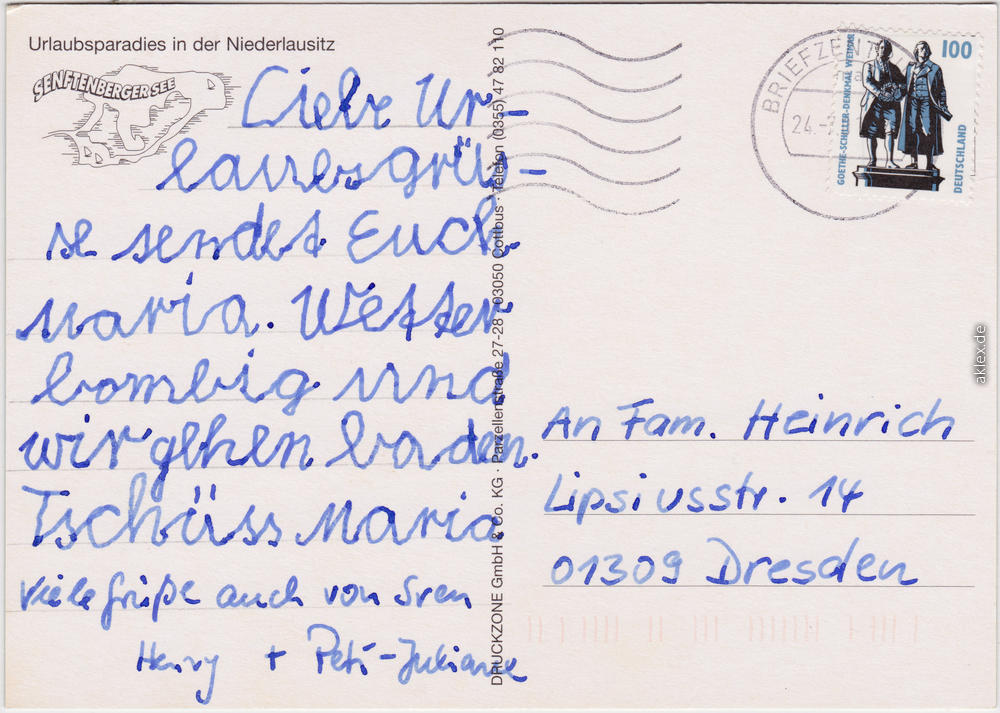 Urlaubsparadies in der Niederlausitz
SENFTENBERGER SEE
Liebe Ur-
laubsgrü-
se sendet Euch
Maria. Wetter
bombig und
wir gehen baden.
Tschüss Maria
Viele Grüße auch von Sven
Henry + Peti-Juliane
DRUCKZONE GmbH & Co. KG · Parzellenstraße 27-28 · 03050 Cottbus · Telefon (0355) 47 82 110
BRIEFZENTRUM
24.
GOETHE-SCHILLER-DENKMAL WEIMAR
100
DEUTSCHLAND
An Fam. Heinrich
Lipsiusstr. 14
01309 Dresden
aklex.de